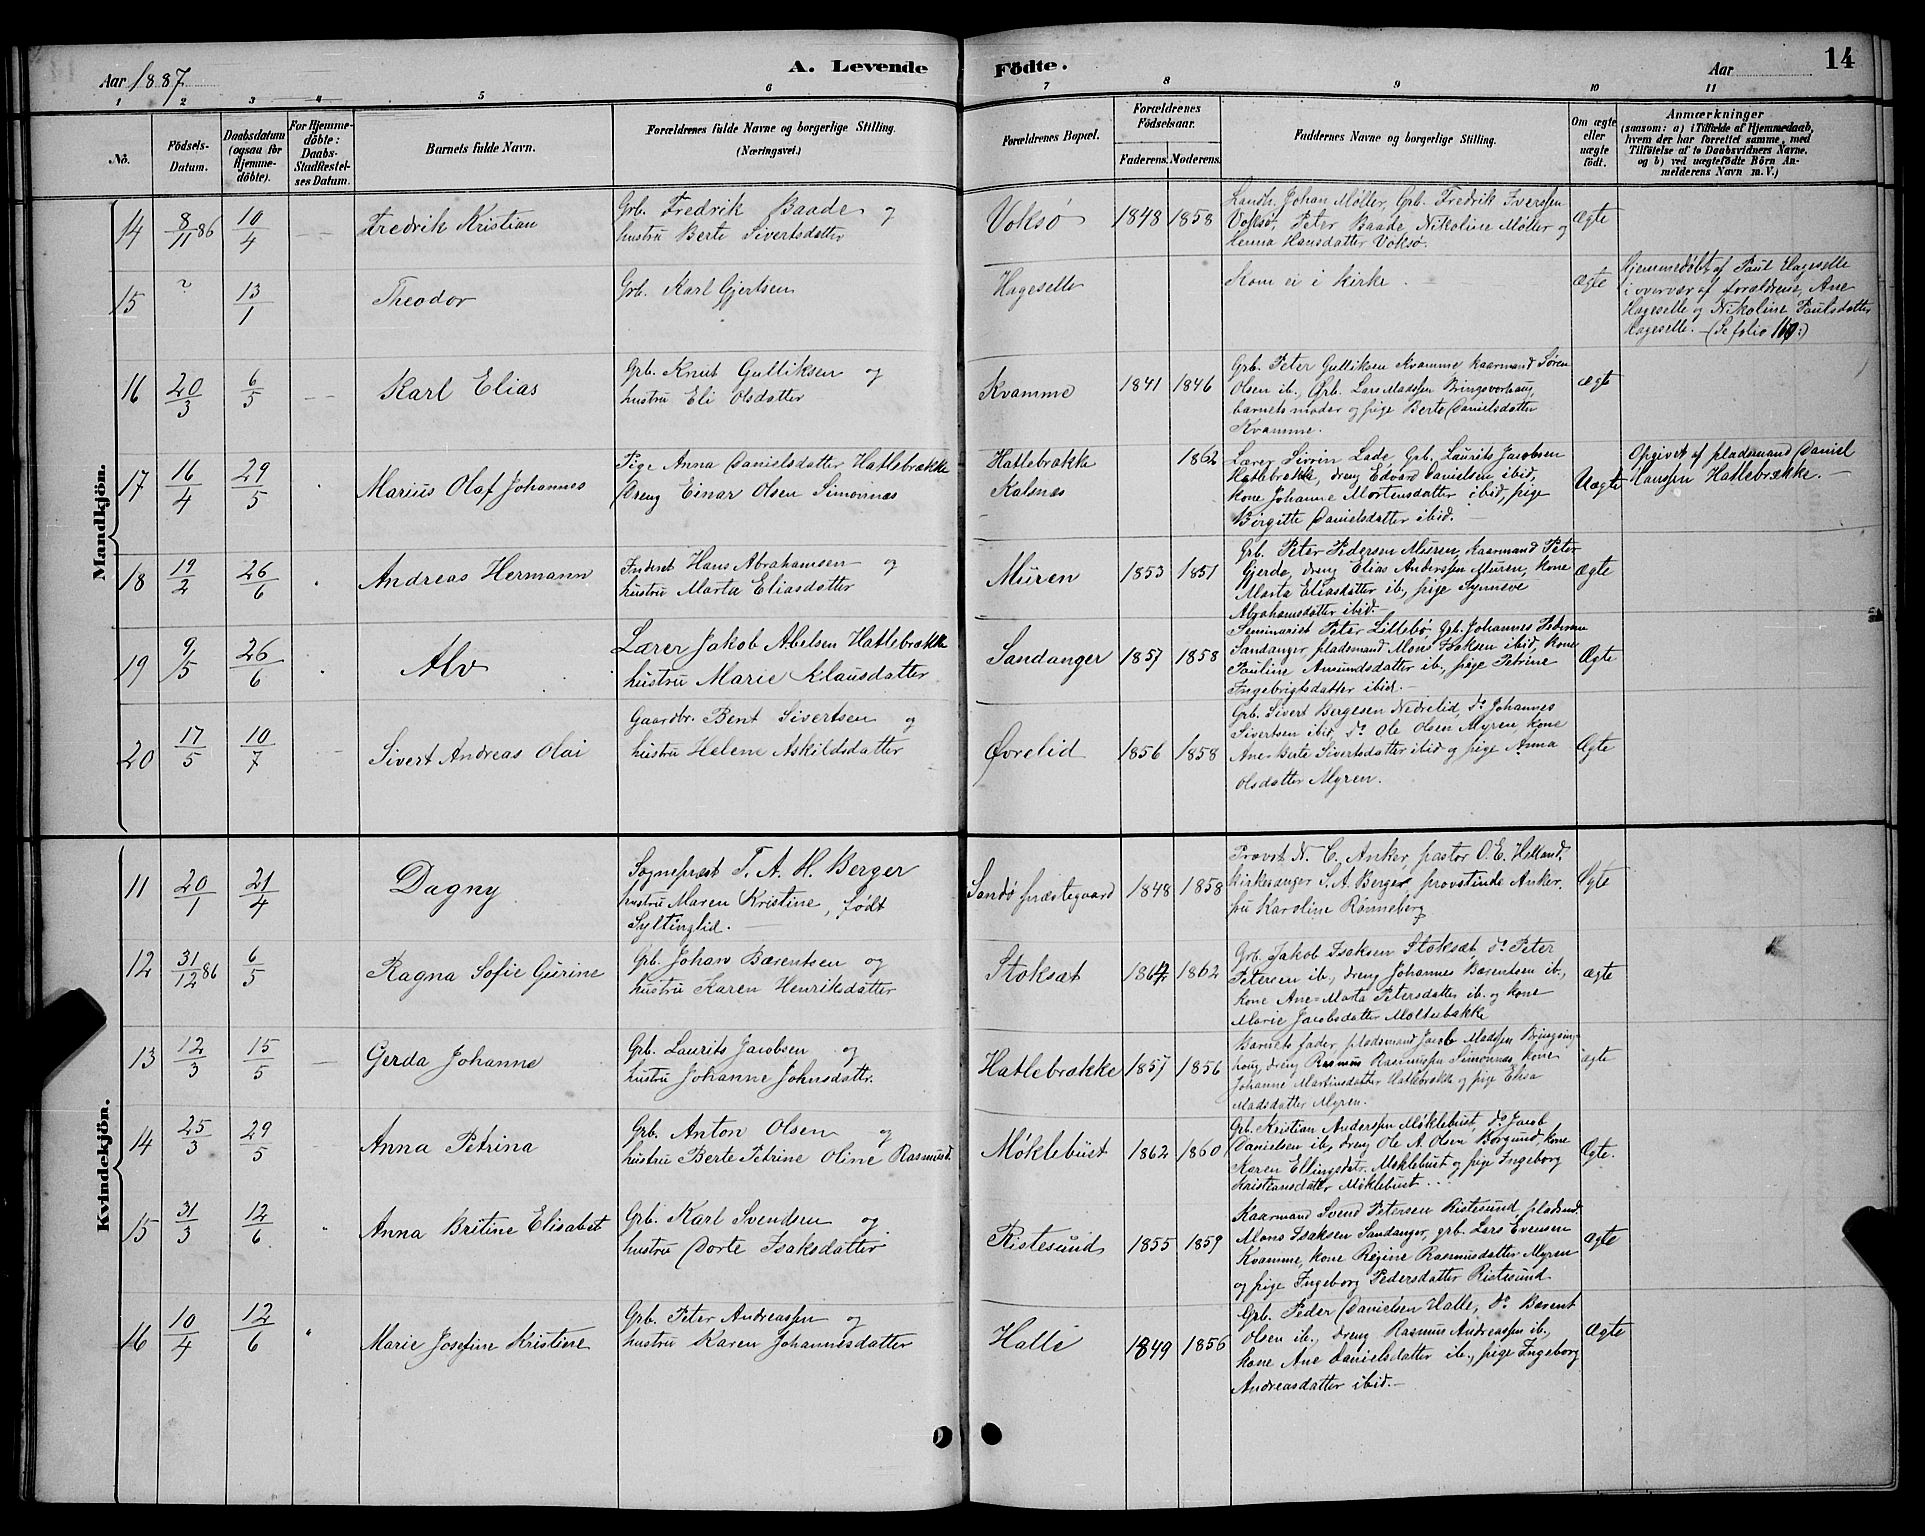 Aar 1887.
A. Levende
Födte.
Aar
14
1 2 3 4 5 6 7 8 9 10 11
No.
Födsels-Datum.
Daabsdatum (ogsaa for Hjemme-döbte).
For Hjemme-döbte: Daabs-Stadfæstel-ses Datum.
Barnets fulde Navn.
Forældrenes fulde Navne og borgerlige Stilling.
(Næringsvei.)
Forældrenes Bopæl.
Forældrenes Födselsaar.
Faderens. Moderens.
Faddernes Navne og borgerlige Stilling.
Om ægte eller uægte födt.
Anmærkninger
(saasom: a) i Tilfælde af Hjemmedaab, hvem der har forrettet samme, med Tilföielse af to Daabsvidners Navne, og b) ved uægtefödte Börn Anmelderens Navn m. V.)
Mandkjön.
14 8/11 86 10/4 Fredrik Kristian
Grb. Fredrik Baade og
hustru Berte Sivertsdatter
Voksø 1848 1858
Landh. Johan Møller, Grb. Fredrik Iverssen
Voksø, Peter Baade, Nikoline Møller og
Hansdatter Voksø.
Ægte
15 ? 13/1 Theodor
Grb. Karl Gjertsen
Hageselle
Kom ei i kirke
Ægte
Hjemmedøbt af Paul Hageselle
i overvær af forældrene, Ane
Hageselle og Nikoline Paulsdatter
Hageselle. - (Se folio 110:)
16 20/3 6/5 Karl Elias
Grb. Knut Gulliksen og
hustru Eli Olsdatter
Kvamme 1841 1846
Grb. Peter Gulliksen Kvamme kaarmand Søren
Olsen ib., Grb. Lars Madssen Bringsvorhaug,
barnets moder og pige Berte Danielsdatter
Kvamme.
ægte
17 16/4 29/5 Marius Olaf Johannes
Pige Anna Danielsdatter Hatlebrække
Dreng Einar Olsen Simonnæs
Hatlebrække
Kalsnæs
1862
Lærer Lade Grb. Laurits Jacobsen
Hatlebrække, dreng Edvard Danielsen ibid,
kone Johanne Mortensdatter ibid, pige
Birgitte Danielsdatter ibid. -
Uægte
Opgivet af pladsmand Daniel
Hanssen Hatlebrække. -
18 19/2 26/6 Andreas Hermann
Inderst Hans Abrahamsen og
hustru Marta Eliasdatter
Muren 1853 1851
Grb. Peter Pedersen Muren, kaarmand Peter
Gjerde, dreng Elias Anderssen Muren, kone
Marta Eliasdatter ib., pige Synneve
Abrahamsdatter ibid. -
Ægte
19 9/5 26/6 Alv
Lærer Jakob Abelsen Hatlebrække
hustru Marie Klausdatter
Sandanger 1857 1858
Seminarist Peter Lillebø, Grb. Johannes Pedersen
Sandanger, pladsmand Mons Isaksen ibid, kone
Pauline Amundsdatter ib., pige Petrine
Ingebrigtsdatter ibid.
Ægte
20 17/5 10/7 Sivert Andreas Olai
Gaardbr. Bent Sivertsen og
hustru Helene Askildsdatter
Øvrelid 1856 1858
Grb. Sivert Bergesen Nedrelid, do Johannes
Sivertsen ibid, do Ole Olsen Myren kone
Ane-Berte Sivertsdatter ibid og pige Anna
Olsdatter Myren.
Ægte
Kvindekjön.
11 20/1 21/4 Dagny
Sogneprest T. A. H. Berger
hustru Maren Kristine, født
Syltinglid. -
Sandø præstegaard 1848 1858
Provst N. C. Anker, pastor O. E. Helland,
kirkesanger S. A. Berger, provstinde Anker,
fru Karoline Rønneberg
Ægte
12 31/12 86 6/5 Ragna Sofie Gurine
Grb. Johan Bærentsen og
hustru Karen Henriksdatter
Stoksæt 1864 1862
Grb. Jakob Isaksen Stoksæt, do Peter
Petersen ib., dreng Johannes Bærentsen ib.,
kone Ane-Marta Petersdatter ib. og kone
Marie Jacobsdatter Moltubakke
ægte
13 12/3 15/5 Gerda Johanne
Grb. Laurits Jacobsen og
hustru Johanne Johnsdattr.
Hatlebrække 1857 1856
Barnets fader, pladsmand Jacob Madssen Bringsing-
haug, dreng Rasmus Rasmussen Simonnæs kone
Johanne Martinsdatter Hatlebrække og pige Elisa
Madsdatter Myren.
ægte
14 25/3 29/5 Anna Petrina
Grb. Anton Olsen og
hustru Berte Petrine Oline Rasmusd.
Møklebust 1862 1860
Grb. Kristian Anderssen Møklebust, do Jacob
Danielsen ib., dreng Ole A. Olsen Borgund, kone
Karen Ellingsdatr. Møklebust og pige Ingeborg
Kristiansdatter Møklebust. . .
Ægte.
15 31/3 12/6 Anna Britine Elisabet
Grb. Karl Svendsen og
hustru Dorte Isaksdatter
Ristesund 1855 1859
Kaarmand Svend Petersen Ristesund, pladsmd.
Mons Isaksen Sandanger, grb. Lars Evensen
Kvamme, kone Regine Rasmusdatter Myren
og pige Ingeborg Pedersdatter Ristesund.
Ægte
16 10/4 12/6 Marie Josefine Kristine
Grb. Peter Andreassen og
hustru Karen Johannesdatter
Halle 1849 1856
Grb. Peder Danielsen Halle, do Bærent
Olsen ib., dreng Rasmus Andreassen ib.,
kone Ane Danielsdatter ib., pige Ingeborg
Andreasdatter ibid. -
Ægte